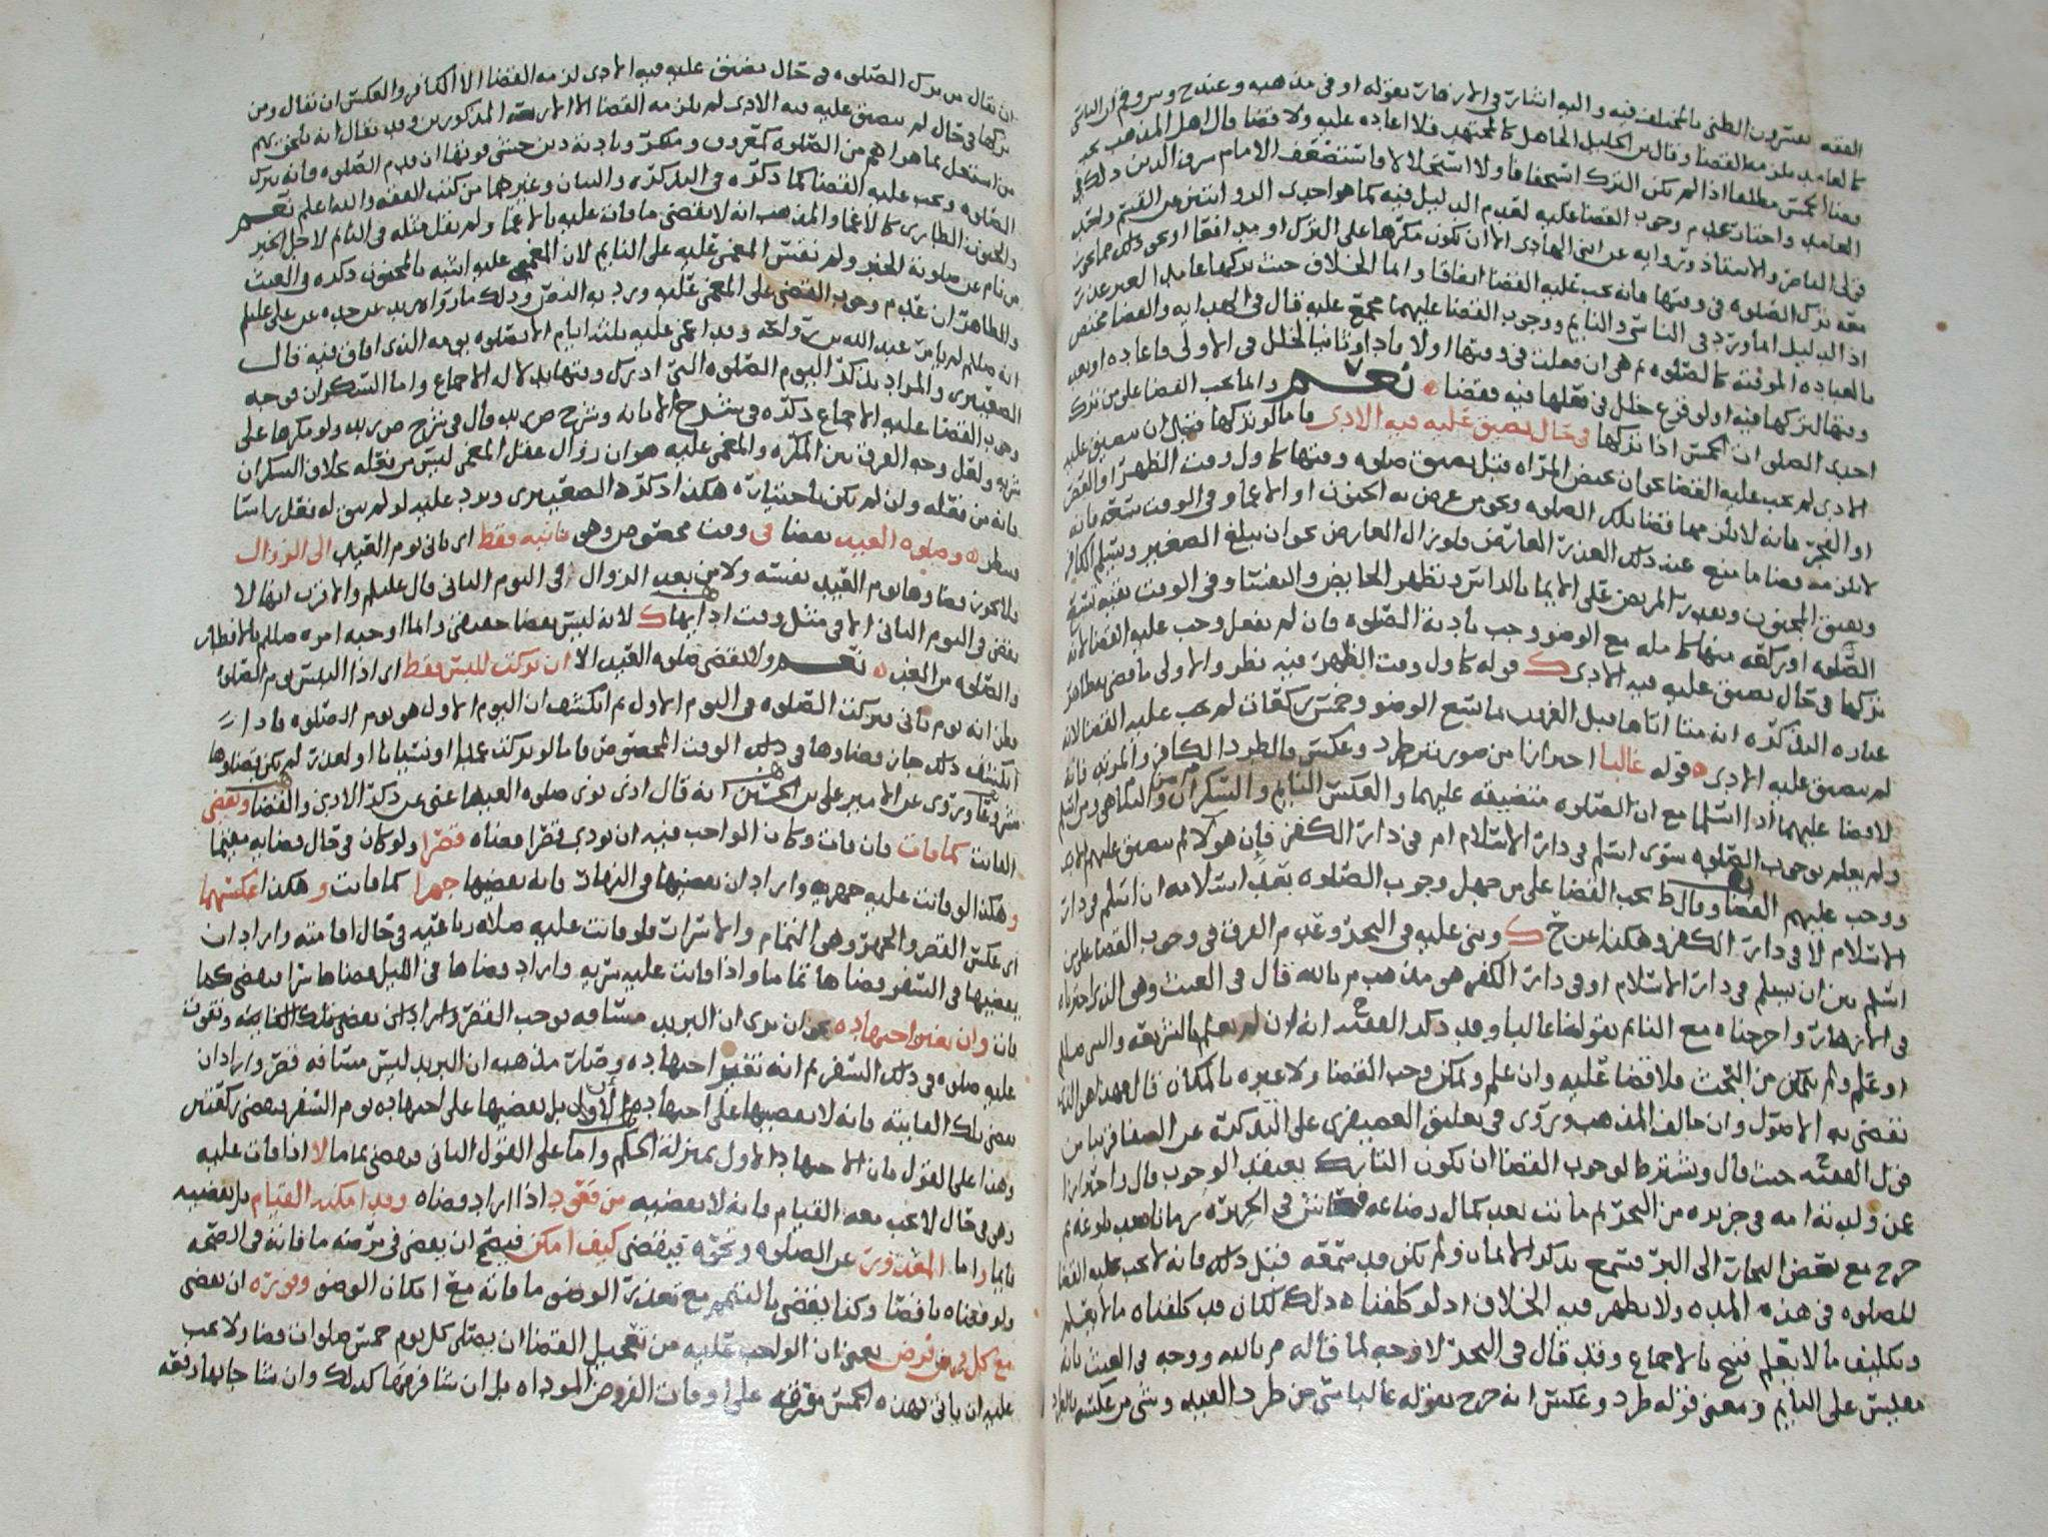 كالعامد يلزمه القضا وقال بن الخليل الجاهل كالمجتهد فلا اعاده عليه ولا قضا قال اهل المذهب يجب
قضا الخمس مطلقا اذا لم يكن الترك استخفافا ولا استحلالا واستضعف الامام شرف الدين ذلك في
العامد واختار عدم وجوب القضا عليه لعدم الدليل فيه كما هو احدى الروايتين عن القسم واحد
قولي الناصر والاستاذ ورواية عن ابني الهادي الا ان يكون مكرها على الترك او مدافعا او نحو ذلك
معه ترك الصلوه في وقتها فانه يجب عليه القضا اتفاقا وانما الخلاف حيث تركها عامدا لغير عذر
اذ الدليل انما ورد في الناسي والنايم ووجوب القضا عليهما مجمع عليه قال في الهدايه والقضا مختص
بالعباده الموقته كالصلوه ثم هي ان فعلت في وقتها اولا فادا وثانيا لخلل في الاولى فاعاده او بعد
وقتها لتركها فيه او لوقوع خلل في فعلها فيه فقضا نعم وانما يجب القضا على من ترك
احدى الصلوات الخمس اذا تركها في حال تضيق عليه فيه الادى فاما لو تركها قبل ان تتضيق عليه
الادى لم يجب عليه القضا نحو ان تحيض المراه قبل تضيق صلوه وقتها كاول وقت الظهر او العصر
او الفجر فانه لا يلزمها قضا تلك الصلوه ونحو من عرض به الجنون او الاغما وفي الوقت سعه فانه
لا يلزمه قضا ما منع عنه ذلك العذر العارض ولو زال العارض نحو ان يبلغ الصغير ويسلم الكافر
ويفيق المجنون ويقدر المريض على الايما بالراس وتطهر الحايض والنفسا وفي الوقت بقيه تسع
الصلوه او ركعه منها كامله مع الوضو وجب تادية الصلوه فان لم يفعل وجب عليه القضا لانه
تركها في حال تضيق عليه فيه الادى قوله كاول وقت الظهر فيه نظر والاولى ما في ظاهر
عباره التذكره انه متى اتاها قبل الغروب بما يسع الوضو وخمس ركعات لم يجب عليه القضا لانه
لم يتضيق عليه الادى قوله غالبا احترازا من صورتين طرد وعكس فالطرد الكافر والمرتد فانه
لا قضا عليهما اذا اسلما مع ان الصلوه متضيقه عليهما والعكس النايم والسكران ومن اسلم
ولم يعلم بوجوب الصلوه سوى اسلم في دار الاسلام ام في دار الكفر فان هولا لم تتضيق عليهم الادى
ووجب عليهم القضا وقال ط يجب القضا على من جهل وجوب الصلوه بعد اسلامه ان اسلم في دار
الاسلام لا في دار الكفر وهكذا عن ح وبنى عليه في البحر وعدم الفرق في وجوب القضا على من
اسلم بين ان يسلم في دار الاسلام او في دار الكفر هو مذهب م بالله قال في الغيث وهو الذي اخترناه
في الازهار واخرجناه مع النايم بقولنا غالبا وقد ذكر الفقيه انه ان لم يعلم بالشريعه والنبي صلم
او علم ولم يتمكن من البحث فلا قضا عليه وان علم وتمكن وجب القضا ولا عبره بالمكان
تقضي به الاصول وان خالف المذهب وروى في تعليق الصعيتري على التذكره عن الصفا قريبا من
قول الفقيه حيث قال ويشترط لوجوب القضا ان يكون التارك يعتقد الوجوب قال واحترازا
عن ولدته امه في جزيره من البحر ثم ماتت بعد كمال رضاعه في الجزيره زمانا بعد بلوغه ثم
خرج مع بعض البحار الى البر فسمع بذكر الايمان ولم يكن قد سمعه قبل ذلك فانه لا يجب عليه القضا
للصلوه في هذه المده ولا يظهر فيه الخلاف اذ لو كلفناه ذلك لكان قد كلفناه ما لم يعلم
وتكليف ما لا يعلم قبيح بالاجماع وقد قال في البحر لا وجه لما قاله م بالله ووجه في الغيث بانه
مقيس على النايم ومعنى قوله طرد وعكس انه خرج بقوله غالبا شي من طرد القيد وشي من عكسه
ان يقال من ترك الصلوه في حال تضيق عليه فيه الادى لزمه القضا الا الكافر والعكس ان يقال ومن
تركها في حال لم تتضيق عليه فيه الادى لم يلزمه القضا الا الاربعه المذكورين وقد يقال انه يلحق بهم
الصلوه ويجب عليه القضا كما ذكره في التذكره والبيان وغيرهما من كتب الفقه والله اعلم نعم
والجنون الطاري كالاغما والمذهب انه لا يقضي ما فاته عليه بالاغما ولم يقل مثله في النايم لاجل الخبر
من نام عن صلوته الخبر ولم نقس المغمى عليه على النايم لان المغمى عليه اشبه بالمجنون ذكره في الغيث
والظاهر ان عدم وجوب القضى على المغمى عليه ورد به النص وذلك ما رواه زيد عن جده عن علي عليلم
انه صللم لم يامر عبد الله بن رواحه وقد اغمي عليه ثلثه ايام الا بصلوه يومه الذي افاق فيه قال
الصعيتري والمراد بذكر اليوم الصلوه التي ادرك وقتها بدلاله الاجماع واما السكران فوجه
وجوب القضا عليه الاجماع ذكره في شرح الابانه
شربه ولعل وجه الفرق بين المكره والمغمى عليه هو ان زوال عقل المغمى ليس من فعله بخلاف السكران
فانه من فعله وان لم يكن باختياره هكذا ذكره الصعيتري ويرد عليه لو لم يبق له فعل راسا
وصلوه العيد تقضا في وقت مخصوص وهي ثانيه فقط اي ثاني يوم العيد الى الزوال
فلا يجوز قضاوها يوم العيد نفسه ولا من بعد الزوال في اليوم الثاني قال عليلم والاقرب انها لا
تقضى في اليوم الثاني الا في مثل وقت ادايها لانه ليس بقضا حقيقي وانما اوجبه امره صللم بالافطار
والصلوه من الغد نعم ولا تقضى صلوه العيد الا ان تركت للبس فقط اي اذا التبس يوم الصلوه
فظن انه يوم ثاني فتركت الصلوه في اليوم الاول ثم انكشف ان اليوم الاول هو يوم الصلوه فاذا
انكشف ذلك جاز قضاوها في ذلك الوقت المخصوص فاما لو تركت عمدا او نسيانا او لعذر لم يكن قضاوها
مشروعا وروى عن الامير علي بن الحسين انه قال اذا نوى صلوه العيد اغنى عن ذكر الادى والقضا ويقضى
الفايت كما فات فان فات وكان الواجب فيه ان يودى قصرا قضاه قصرا ولو كان في حال قضايه مقيما
وهكذا لو فاتت عليه جهريه واراد ان يقضيها في النهار فانه يقضيها جهرا كما فاتت وهكذا عكسهما
اي عكس القصر والجهر وهي التمام والاسرار فلو فاتت عليه صلاه رباعيه في حال اقامته واراد ان
يقضيها في السفر قضاها تماما واذا فاتت عليه سريه واراد قضاها في الليل قضاها سرا فيقضى كما
فات وان تغير اجتهاده نحو ان يرى ان البريد مسافه توجب القصر
عليه صلوه في ذلك السفر ثم انه تغير اجتهاده وصار مذهبه ان البريد ليس مسافه قصر واراد ان
يقضي تلك الفايته فانه لا يقضيها على اجتهاده الاول بل يقضيها على اجتهاده يوم السفر فيقضي ركعتين
وهذا على القول بان الاجتهاد الاول بمنزلة الحكم واما على القول الثاني فيقضي تماما لا اذا فات عليه
وهو في حال لا يجب معه القيام فانه لا يقضيه من قعود اذا اراد قضاه وقد امكنه القيام بل يقضيه
قايما واما المعذور عن الصلوه ونحوه فيقضي كيف امكن فيصح ان يقضي في مرضه ما فاته في الصحه
ولو قعد وكذا يقضي بالتيمم مع تعذر الوضو ما فاته مع امكان الوضو وفوره ان يقضي
مع كل فرض فرض يعني ان الواجب عليه من تعجيل القضا ان يصلي كل يوم خمس صلوات قضا ولا يجب
عليه ان ياتي بهذه الخمس مفرقه على اوقات الفروض الموداه بل ان شا فرقها كذلك وان شا جا بها دفعه